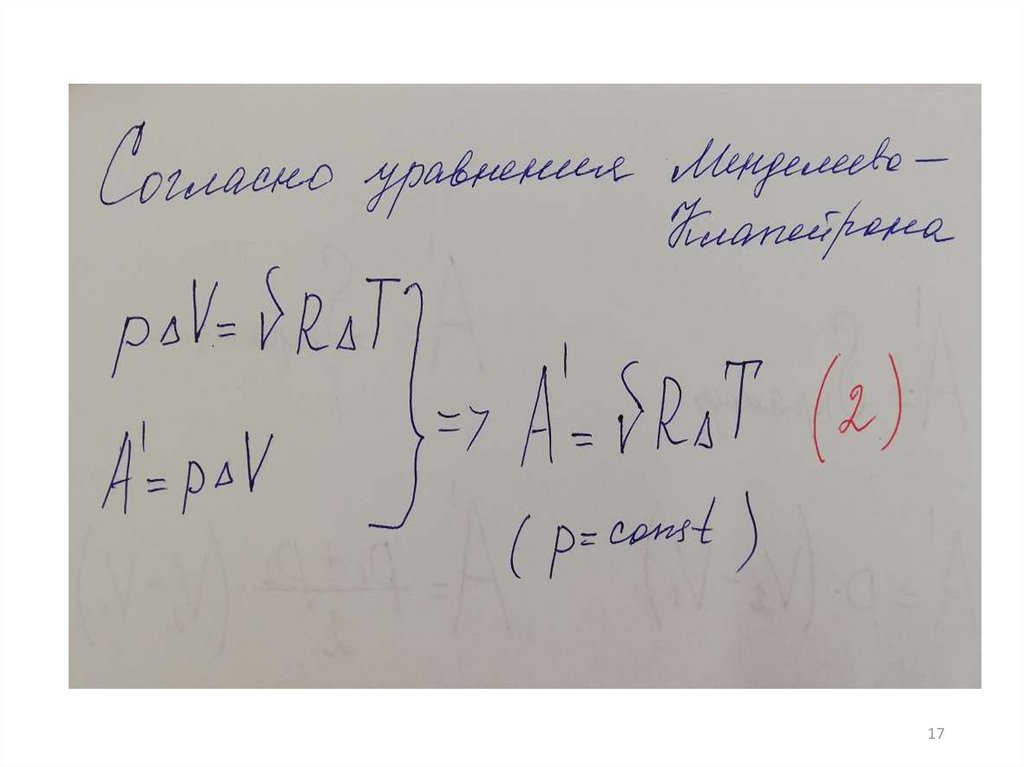 Согласно уравнения Менделеева-
Клапейрона
p∆V=√R∆T
A'=p∆V
=> A'=√R∆T (2)
(p=const)
17